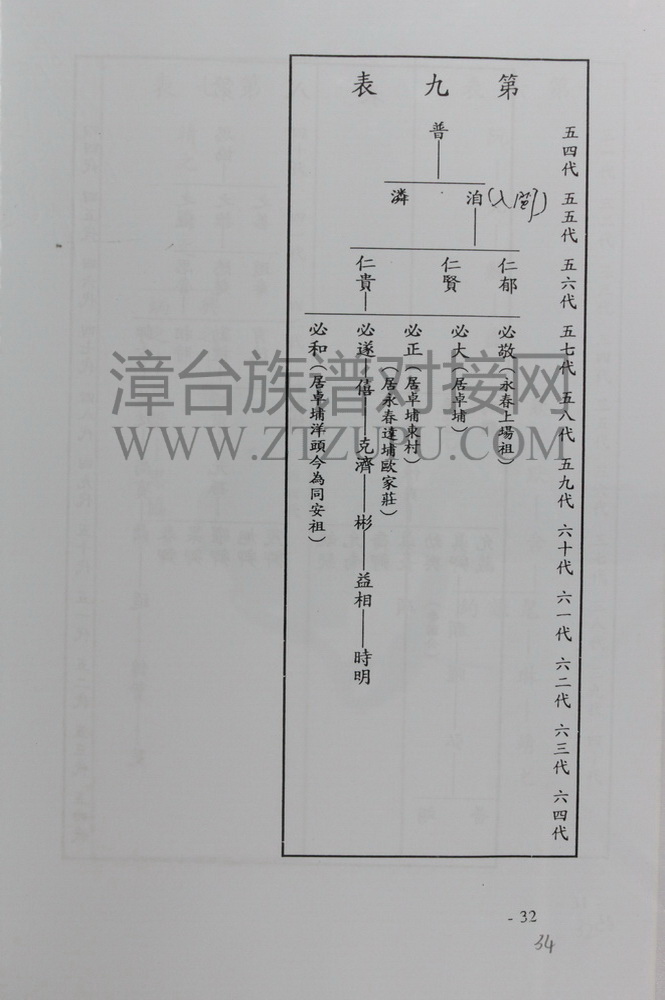 第九表
五四代 五五代 五六代 五七代 五八代 五九代 六十代 六一代 六二代 六三代 六四代
普
洎(入閩)
潾
仁郁
仁賢
仁貴
必敬(永春上場祖)
必大(居卓埔)
必正(居卓埔東村)
(居永春達埔歐家莊)
必遂 僖 克濟 彬 益相 時明
必和(居卓埔洋頭今為同安祖)
漳台族谱对接网
WWW.ZTZUPU.COM
- 32
34